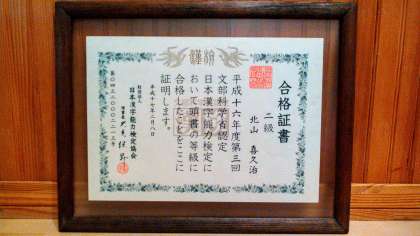 合格証書
二級
北山 喜久治
平成十六年度第三回
文部科学省認定
日本漢字能力検定に
おいて頭書の等級に
合格したことをここに
証明します。
平成十七年二月八日
財団法人
日本漢字能力検定協会
理事長